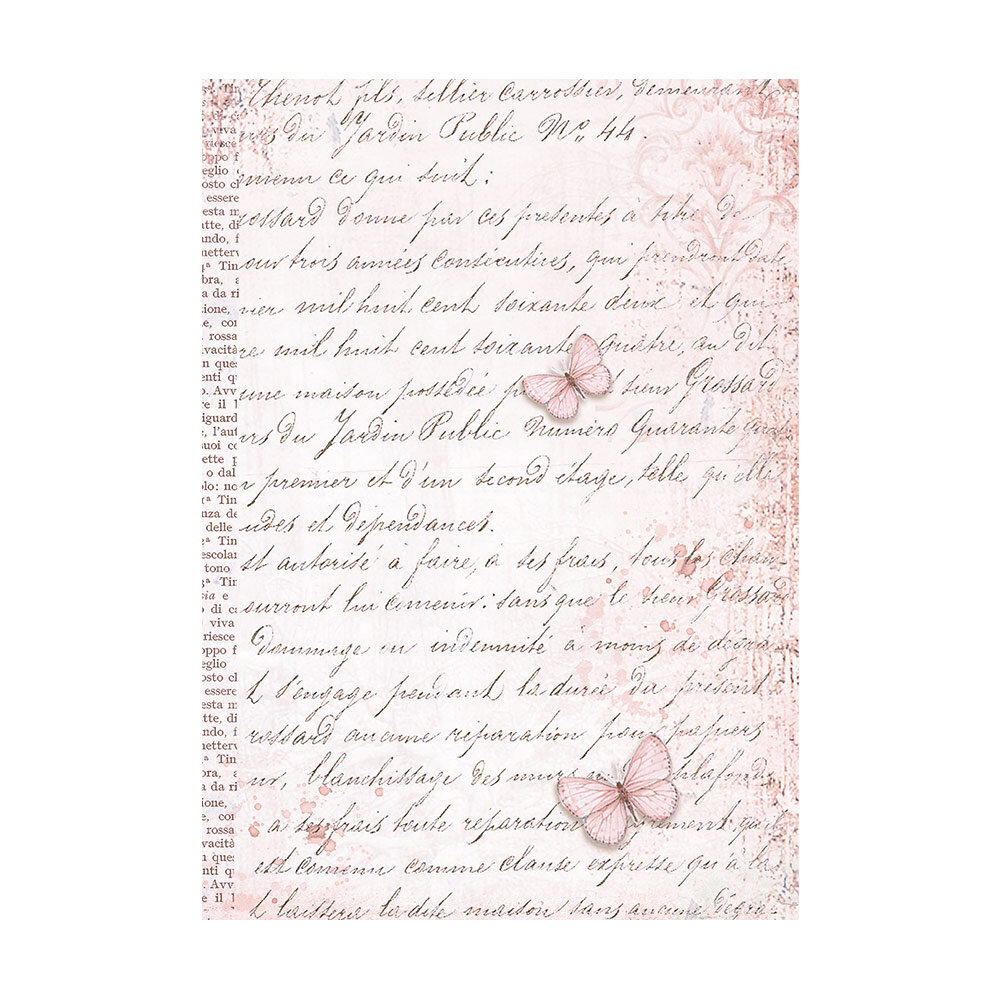 Thenot fils, sellier carrossier, demeurant
rs du Jardin Public No. 44.
ce qui suit:
ossard donne par ces presentes à titre de
our trois années consécutives, qui prendront date
vier mil huit cent soixante deux et qui
re mil huit cent soixante quatre, au dit
une maison possédée sieur Grossard
rs du Jardin Public Numéro Quarante
premier et d'un second étage, telle qu'elle
udes et dépendances.
st autorisé à faire, à ses frais, tous les chan-
ourront lui convenir: sans que le sieur Grossard
dommage ou indemnité à moins de dégra-
t s'engage pendant la durée du présent
rossard aucune réparation pour papiers
ur, blanchissage des murs plafonds
a ses frais toute réparation
est convenu comme clause expresse qu'à la
t laissera la dite maison sans aucune dégra-
viva
oppo f
eglio
osto cl
essere
esta m
tte, di
ndo, f
netterv
ª Tin
bra, a
a da ri
ione,
e, cor
rossa
vacità
n que
enti q
o. Avv
re il l
iguard
e, l'aut
uoi co
ette p
o dal
lo: no
ª Tin
nza de
delle
ª Tin
escolar
tono
ª Tin
sia e
di ca
viva
riesce
oppo f
eglio
osto cl
essere
esta m
tte, di
ndo, f
netterv
ª Tin
bra, a
a da ri
ione,
e, cor
rossa
vacità
n que
enti q
. Avv
e il l